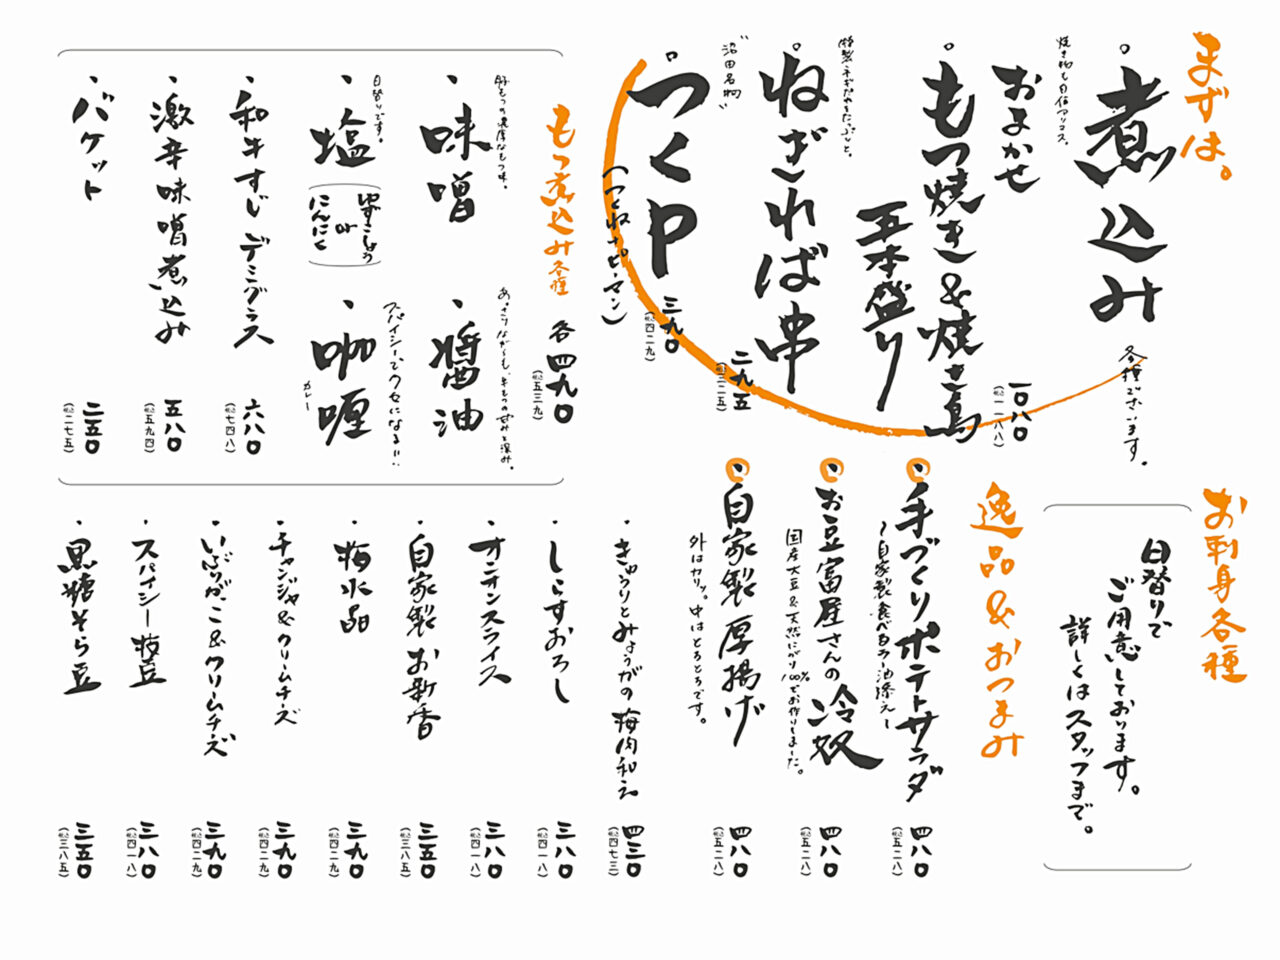 まずは。
煮込み
各種でございます。
焼き物も自信アリマス。
おまかせ
もつ焼き&焼き鳥
五本盛り
一〇八〇
(税込一一八八)
特製ネギだれをたっぷりと。
ねぎれば串
二九五
(税込三二五)
"沼田名物"
つくP
(つくねナピーマン)
三九〇
(税込四二九)
もつ煮込み各種
各四九〇
(税込五三九)
味噌
醤油
あっさりながらも、牛もつの甘みと深み。
日替りです。
塩
ゆずこしょう
or
にんにく
スパイシーでクセになる!!
咖喱
カレー
和牛すじデミグラス
六八〇
(税込七四八)
激辛味噌煮込み
五八〇
(税込五九四)
バケット
二五〇
(税込二七五)
お刺身各種
日替りで
ご用意しております。
詳しくはスタッフまで。
逸品&おつまみ
手づくりポテトサラダ
〜自家製食べるラー油添え〜
四八〇
(税込五二八)
お豆富屋さんの
冷奴
国産大豆&天然にがり100%でお作りしました。
四八〇
(税込五二八)
自家製厚揚げ
外はカリッ。中はとろとろです。
四八〇
(税込五二八)
きゅうりとみょうがの梅肉和え
四三〇
(税込四七三)
しらすおろし
三八〇
(税込四一八)
オニオンスライス
三八〇
(税込四一八)
自家製お新香
三五〇
(税込三八五)
梅水晶
三九〇
(税込四二九)
チャンジャ&クリームチーズ
三九〇
(税込四二九)
いぶりがっこ&クリームチーズ
三九〇
(税込四二九)
スパイシー枝豆
三八〇
(税込四一八)
黒糖そら豆
三五〇
(税込三八五)